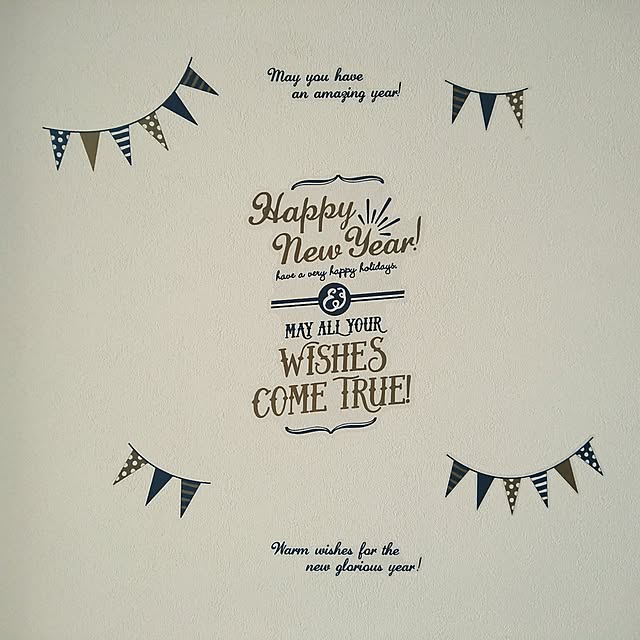 May you have
an amazing year!
Happy
New Year!
have a very happy holidays.
&
MAY ALL YOUR
WISHES
COME TRUE!
Warm wishes for the
new glorious year!